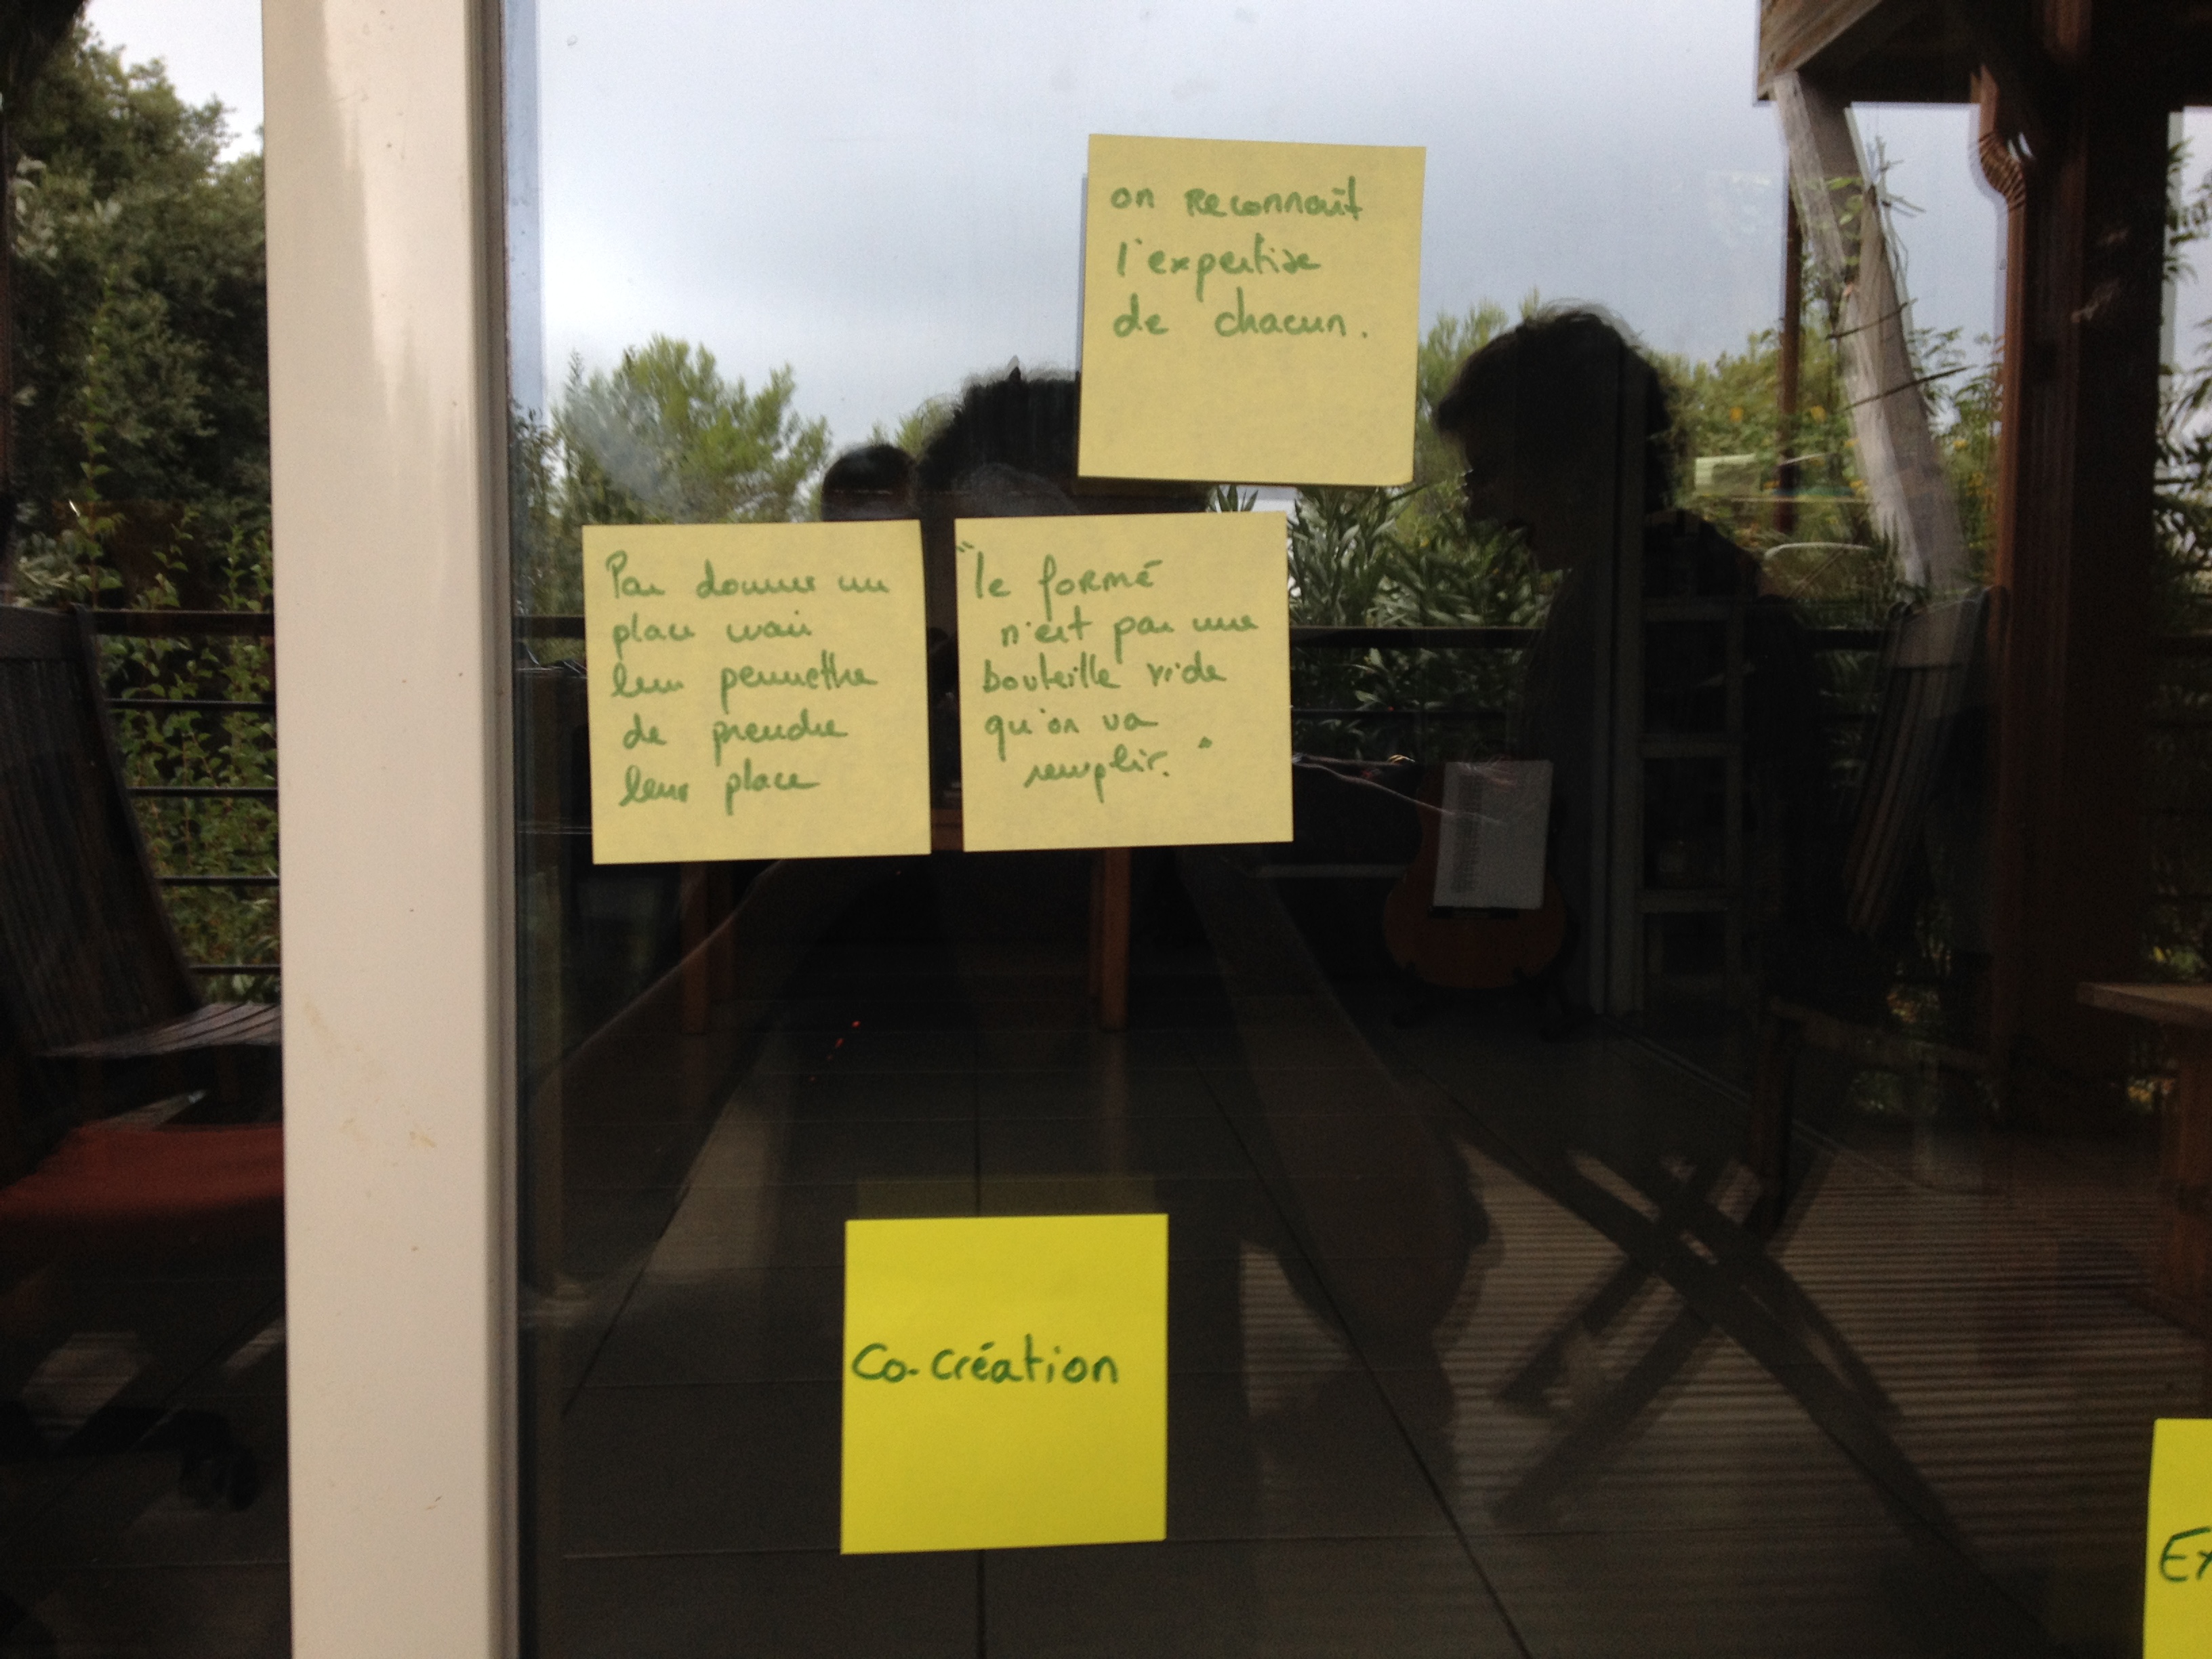 on reconnaît
l'expertise
de chacun.
Pas donner un
place mais
leur permettre
de prendre
leur place
"le formé
n'est pas une
bouteille vide
qu'on va
remplir."
Co-Création
Ex